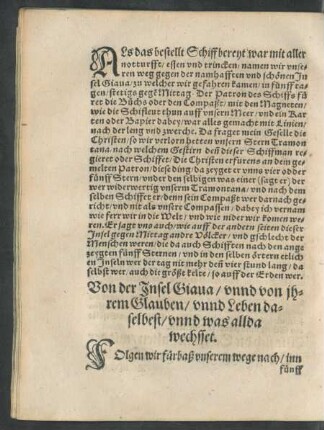 ALs das bestellt Schiff bereyt war mit aller
notturfft/essen vnd trincken/namen wir vnse-
ren weg gegen der namhafften vnd schönen In
sel Giaua/zu welcher wir gefahrt kamen/in fünff ta-
gen/stetigs gegē Mittag. Der Patron des Schiffs fü
ret die Büchs oder den Compasst/mit den Magneten/
wie die Schiffleut thun auff vnserm Meer/vnd ein Kar
ten oder Bapier dabey/war alles gemacht mit Linien/
nach der leng vnd zwerche. Da fraget mein Geselle die
Christen/so wir verlorn hetten vnsern Stern Tramon
tana/nach welchem Gestirn denn dieser Schiffman re-
gieret oder Schiffet/Die Christen erfurens an dem ge-
melten Patron/diese ding/da zeyget er vnns vier oder
fünff Stern/vnder den selbigen was einer (sagt er) der
wer widerwertig vnserm Tramontana/vnd nach dem
selben Schiffet er/denn sein Compasst wer darnach ge-
richt/vnd nit als vnsere Compassen/dabey ich vernam
wie ferr wir in die Welt/vnd wie nider wir komen we-
ren. Er sagt vns auch/wie auff der andern seiten dieser
Insel gegen Mittag andre Völcker/vnd gschlecht der
Menschen weren/die da auch Schifften nach den ange
zeygten fünff Sternen/vnd in den selben örtern etlich
en Inseln wer der tag nit mehr denn vier stund lang/da
selbst wer/auch die größt kelte/so auff der Erden wer.
Von der Insel Giaua/vnnd von jh-
rem Glauben/vnnd Leben da-
selbest/vnnd was allda
wechsset.
FOlgen wir fürbaß vnserem wege nach/inn
fünff